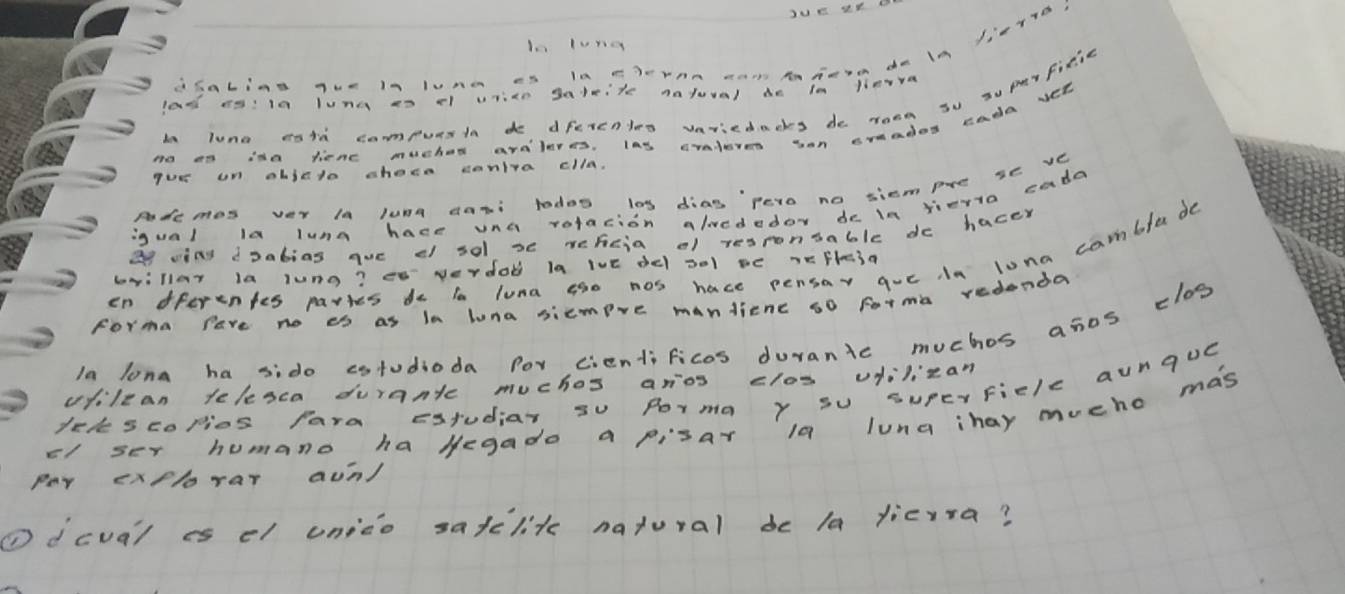 JUE
la luna
¿Sabias que la luna es la eterna de la tierra?
las es: la luna es el unico sateite natural de la tierra
la luna está compuesta de dferentes variedades de roca su superficie
no es isa tiene muchos aráteres. las crateres son creados cada vez
que un objeto choca contra ella.
Podemos ver la luna casi todos los dias pero no siempre se ve
igual la luna hace una rotación alrededor de la tierra cada
dias ¿sabias que el sol se reflcja el responsable de hacer
brillar la luna? es verdod la luz del sol se refleja
en dferentes partes de la luna eso nos hace pensar que la luna cambla de
forma Pere no es as la luna siempre mantiene so forma redonda
la luna ha sido estudioda Por cientificos durante muchos años elos
utilzan telesca durante muchos años elos utilizan
telescopios Para estudiar su Forma y su superfiele aunque
el ser humano ha llegado a pisar la luna ihay mucho más
por explorar aún!
① ¿cuál es el unico satélite natural de la tierra?